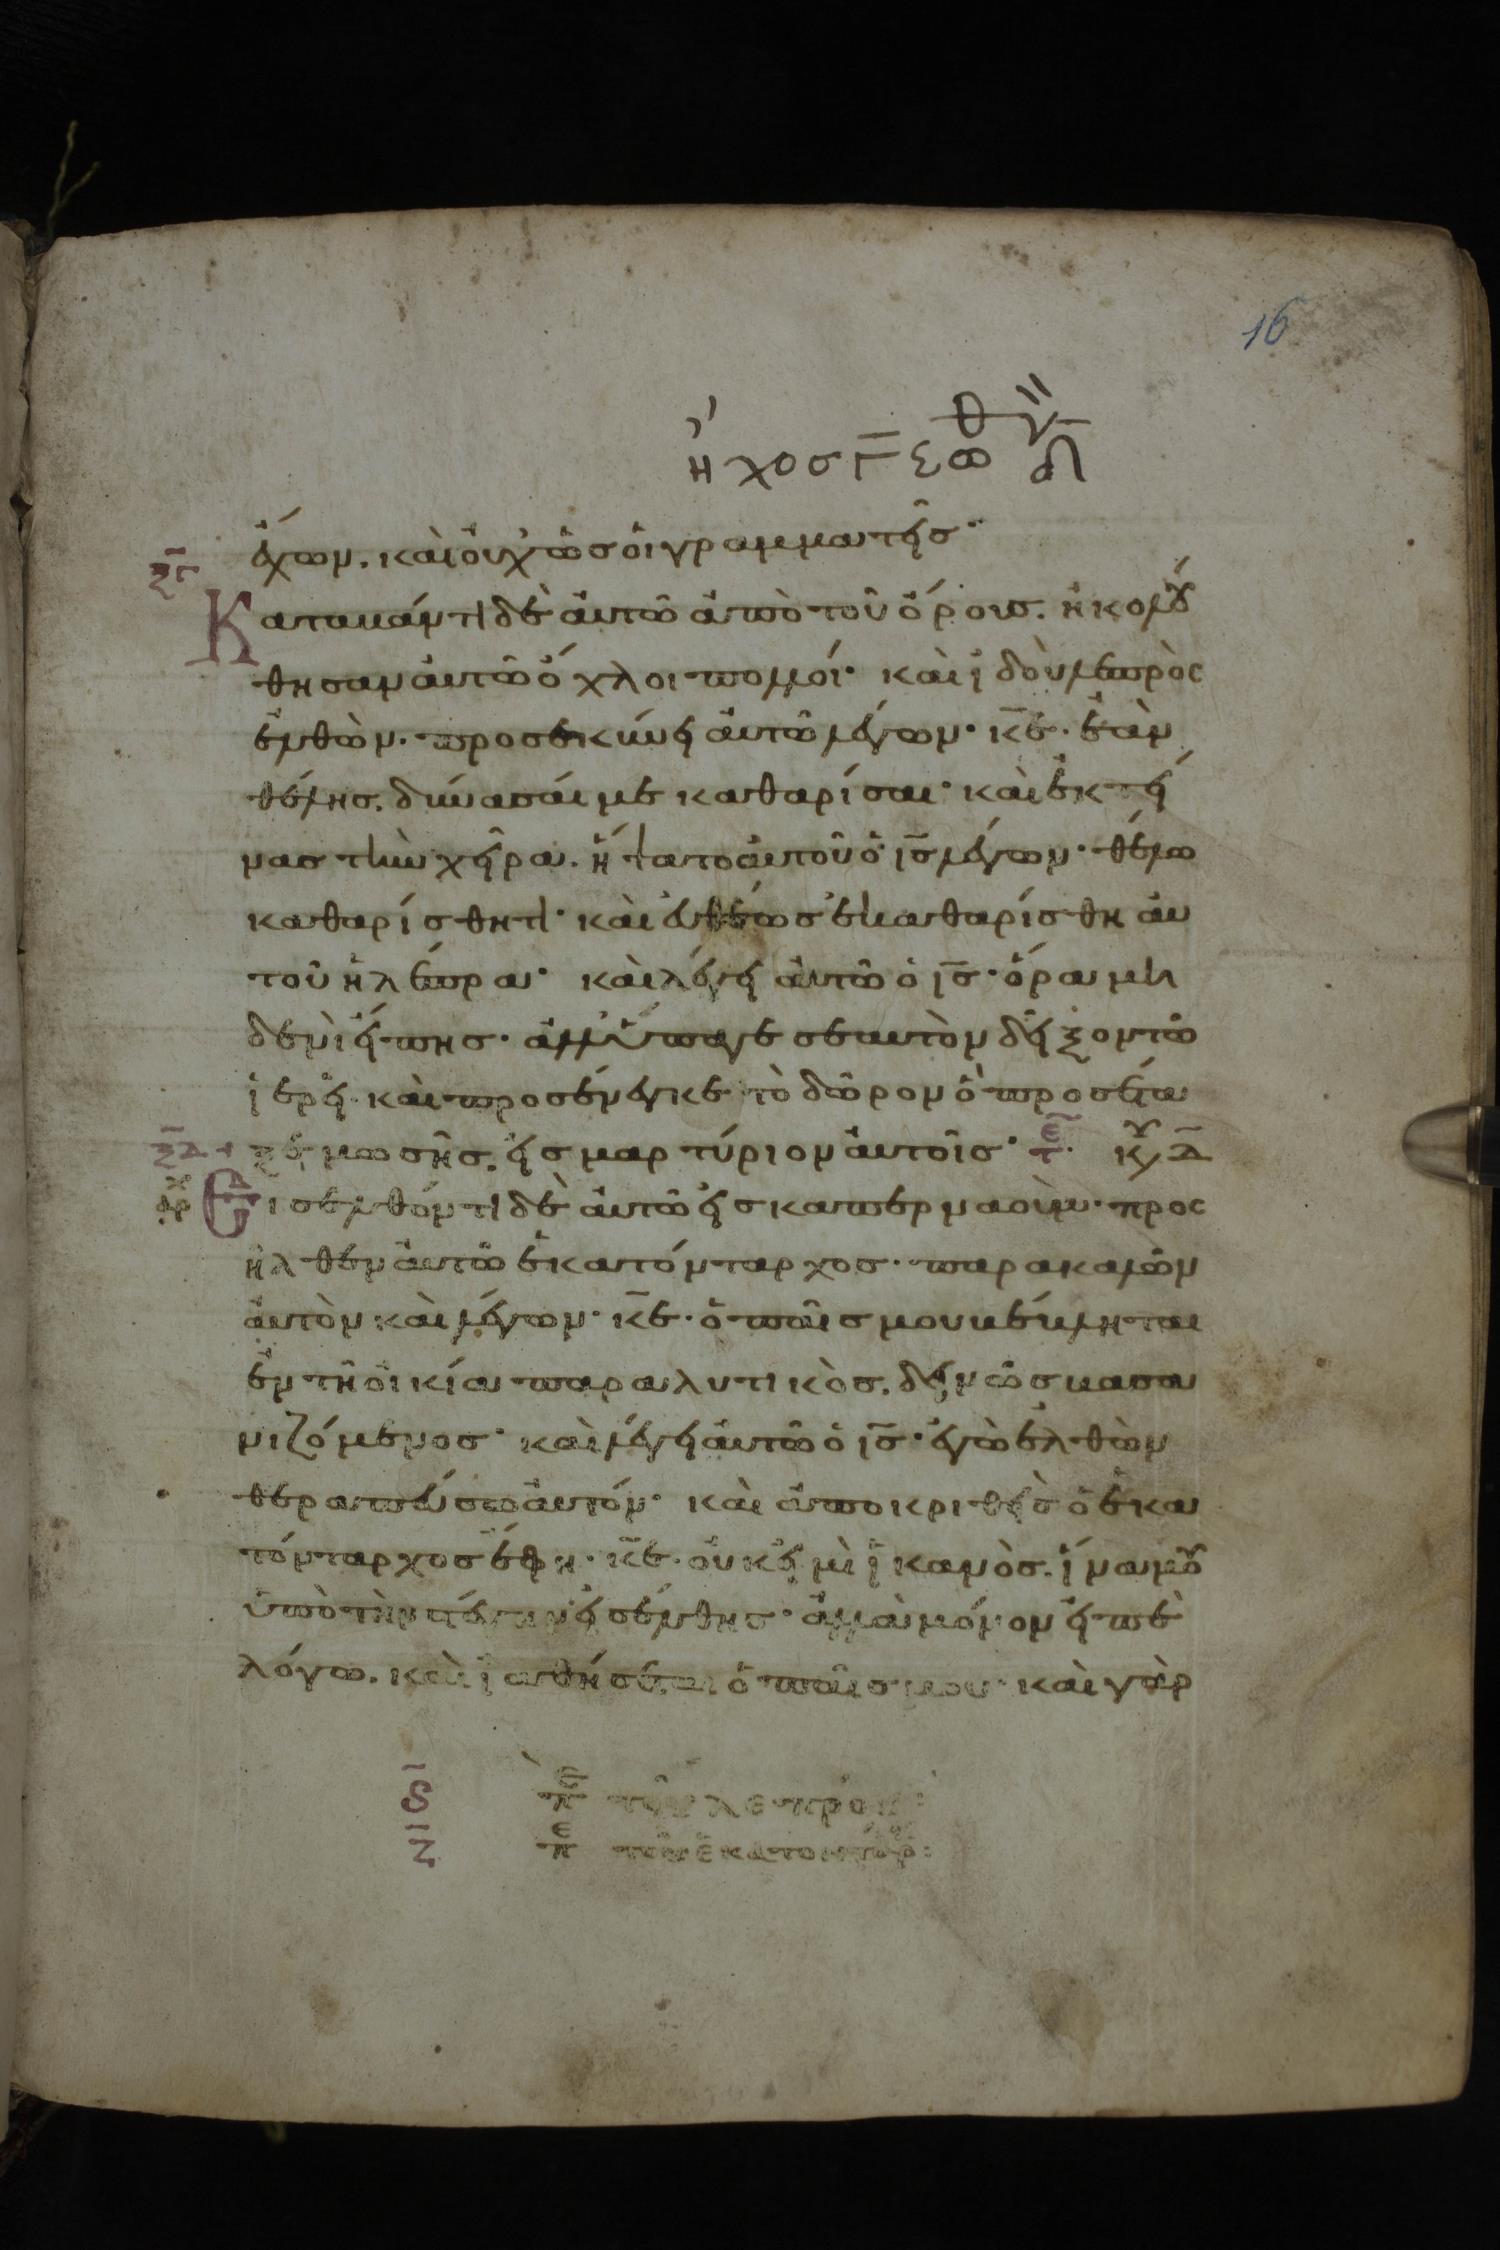 16
ἦχος γ̅ εωθ ν̎ δ
ἔχων. καὶ οὐχ ὡς οἱ γραμματεῖς·
ξγ
Καταβάντι δὲ αὐτῶ ἀπὸ τοῦ ὄρους. ἠκολού
θησαν αὐτῶ ὄχλοι πολλοί· καὶ ἰδοὺ λεπρὸς
ἐλθὼν. προσεκύνει αὐτῶ λέγων· κ̅ε̅. ἐὰν
θέλης. δύνασαί με καθαρίσαι· καὶ ἐκτεί
νας τὴν χεῖρα. ἥψατο αὐτοῦ ὁ ι̅ς̅ λέγων· θέλω
καθαρίσθητι· καὶ εὐθέως ἐκαθαρίσθη αὐ
τοῦ ἡ λέπρα· καὶ λέγει αὐτῶ ὁ ι̅ς̅· ὅρα μη
δενὶ εἴπης· ἀλλ' ὕπαγε σεαυτὸν δεῖξον τῶ
ἱερεῖ. καὶ προσένεγκε τὸ δῶρον ὃ προσέτα
ξδ ξε μωσῆς. εἰς μαρτύριον αὐτοῖς· τε κυ δ
αρχ Εἰσελθόντι δὲ αὐτῶ εἰς καπερναούμ· προς
ῆλθεν αὐτῶ ἑκατόνταρχος. παρακαλῶν
αὐτὸν καὶ λέγων· κ̅ε̅. ὁ παῖς μου βέβληται
ἐν τῆ οἰκία παραλυτικὸς. δεινῶς βασα
νιζόμενος· καὶ λέγει αὐτῶ ὁ ι̅ς̅· ἐγὼ ἐλθὼν
θεραπεύσω αὐτόν· καὶ ἀποκριθεὶς ὁ ἑκα
τόνταρχος ἔφη. κ̅ε̅. οὐκ εἰμὶ ἱκανὸς. ἵνα μου
ὑπὸ τὴν στέγην εἰσέλθης· ἀλλὰ μόνον εἰπὲ
λόγω. καὶ ἰαθήσεται ὁ παῖς μου· καὶ γὰρ
ς̅ πε τοῦ λεπροῦ:
ζ̅ πε τοῦ ἑκατοντάρχ: